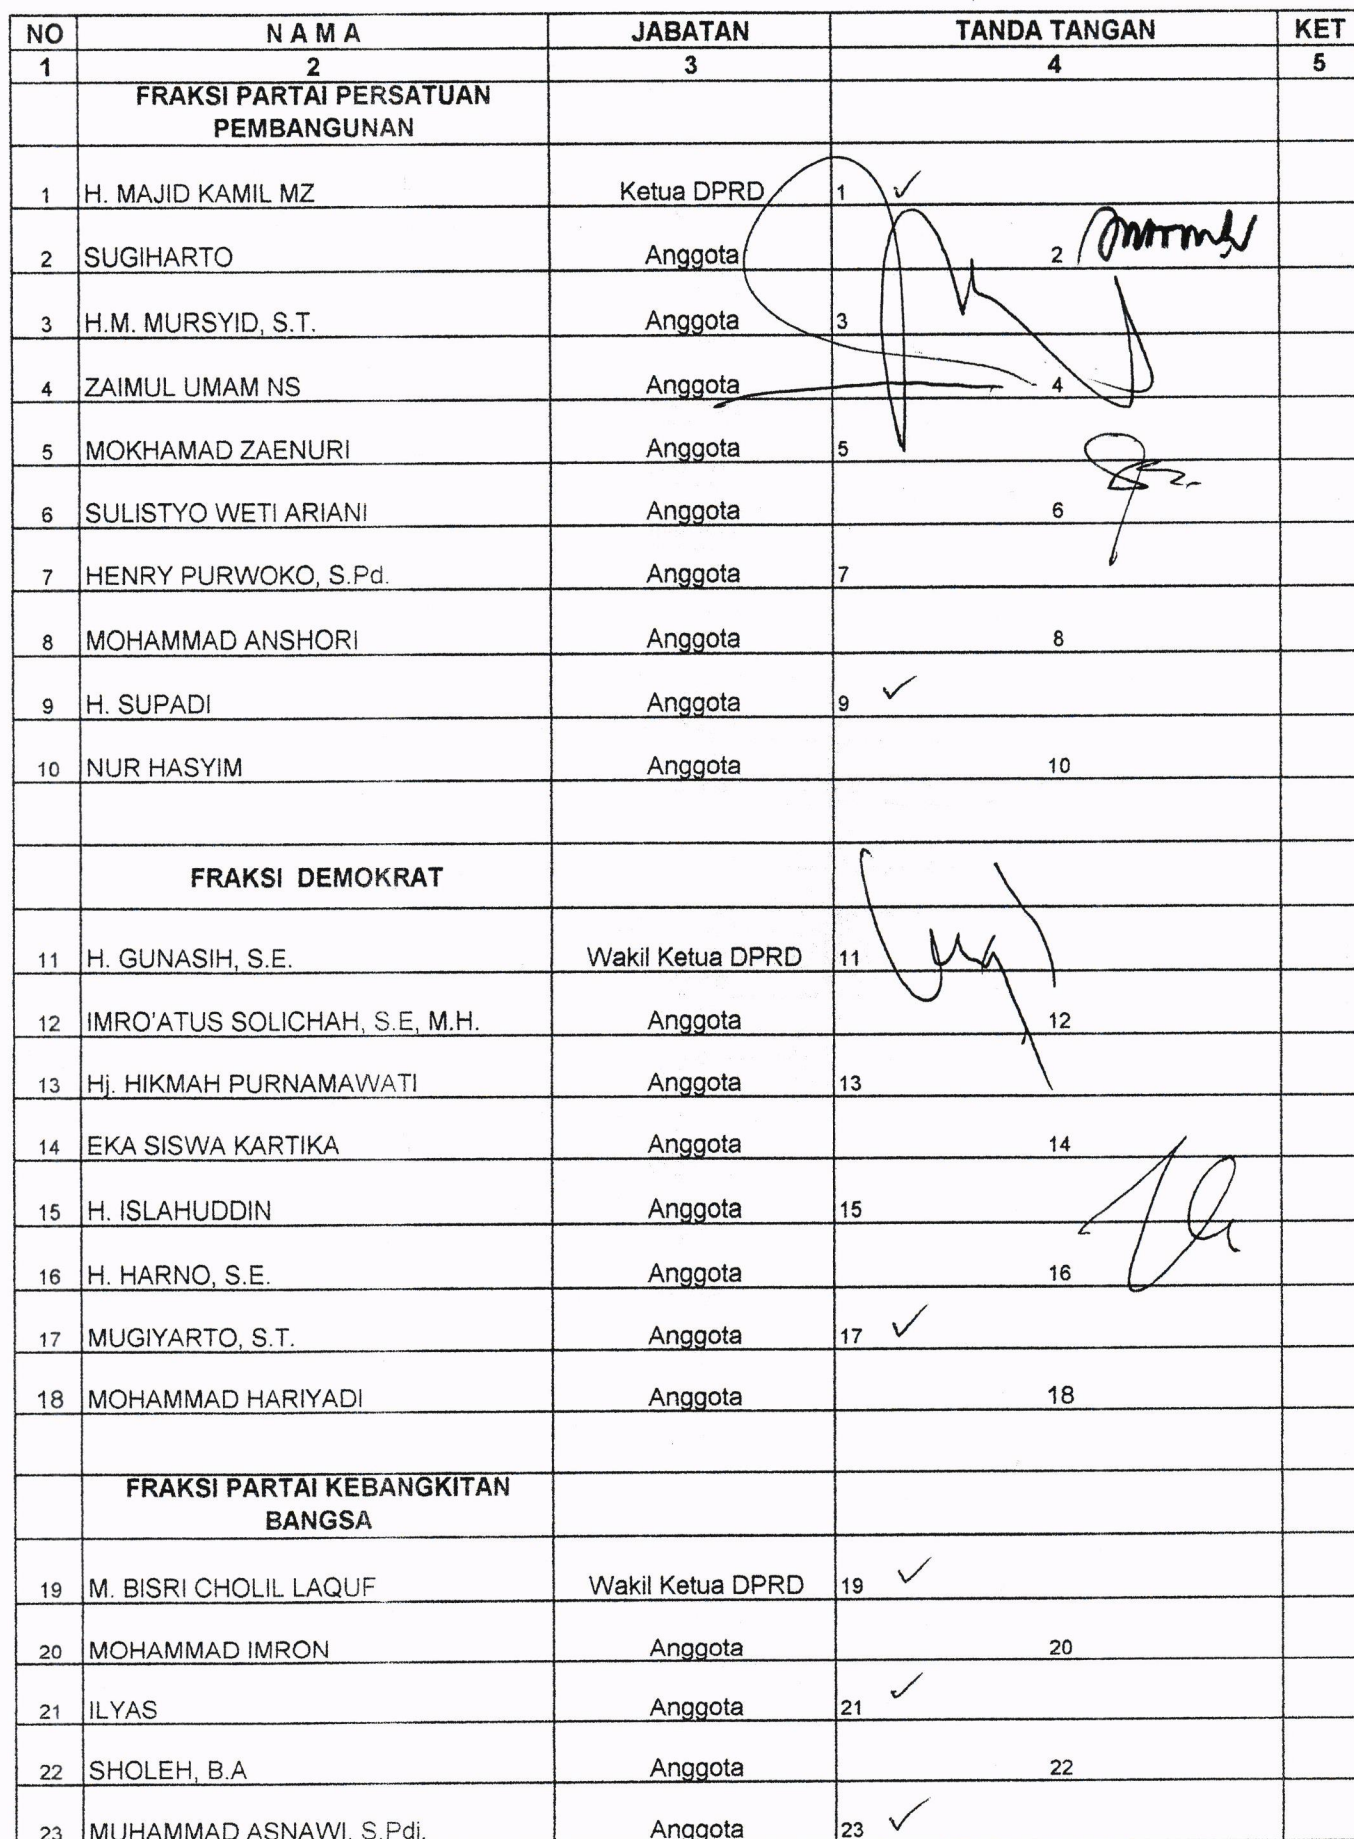 NO N A M A JABATAN TANDA TANGAN KET
1 2 3 4 5
FRAKSI PARTAI PERSATUAN
PEMBANGUNAN
1 H. MAJID KAMIL MZ Ketua DPRD 1 ✓
2 SUGIHARTO Anggota 2
3 H.M. MURSYID, S.T. Anggota 3
4 ZAIMUL UMAM NS Anggota 4
5 MOKHAMAD ZAENURI Anggota 5
6 SULISTYO WETI ARIANI Anggota 6
7 HENRY PURWOKO, S.Pd. Anggota 7
8 MOHAMMAD ANSHORI Anggota 8
9 H. SUPADI Anggota 9 ✓
10 NUR HASYIM Anggota 10
FRAKSI DEMOKRAT
11 H. GUNASIH, S.E. Wakil Ketua DPRD 11
12 IMRO'ATUS SOLICHAH, S.E, M.H. Anggota 12
13 Hj. HIKMAH PURNAMAWATI Anggota 13
14 EKA SISWA KARTIKA Anggota 14
15 H. ISLAHUDDIN Anggota 15
16 H. HARNO, S.E. Anggota 16
17 MUGIYARTO, S.T. Anggota 17 ✓
18 MOHAMMAD HARIYADI Anggota 18
FRAKSI PARTAI KEBANGKITAN
BANGSA
19 M. BISRI CHOLIL LAQUF Wakil Ketua DPRD 19 ✓
20 MOHAMMAD IMRON Anggota 20
21 ILYAS Anggota 21 ✓
22 SHOLEH, B.A Anggota 22
23 MUHAMMAD ASNAWI, S.Pdi. Anggota 23 ✓